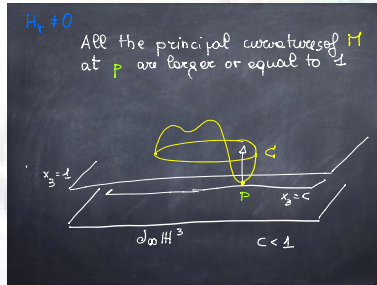 Hr ≠ 0
All the principal curvatures of M
at p are larger or equal to 1
C
x₃=1
p
x₃=c
∂∞ ℍ³
C<1